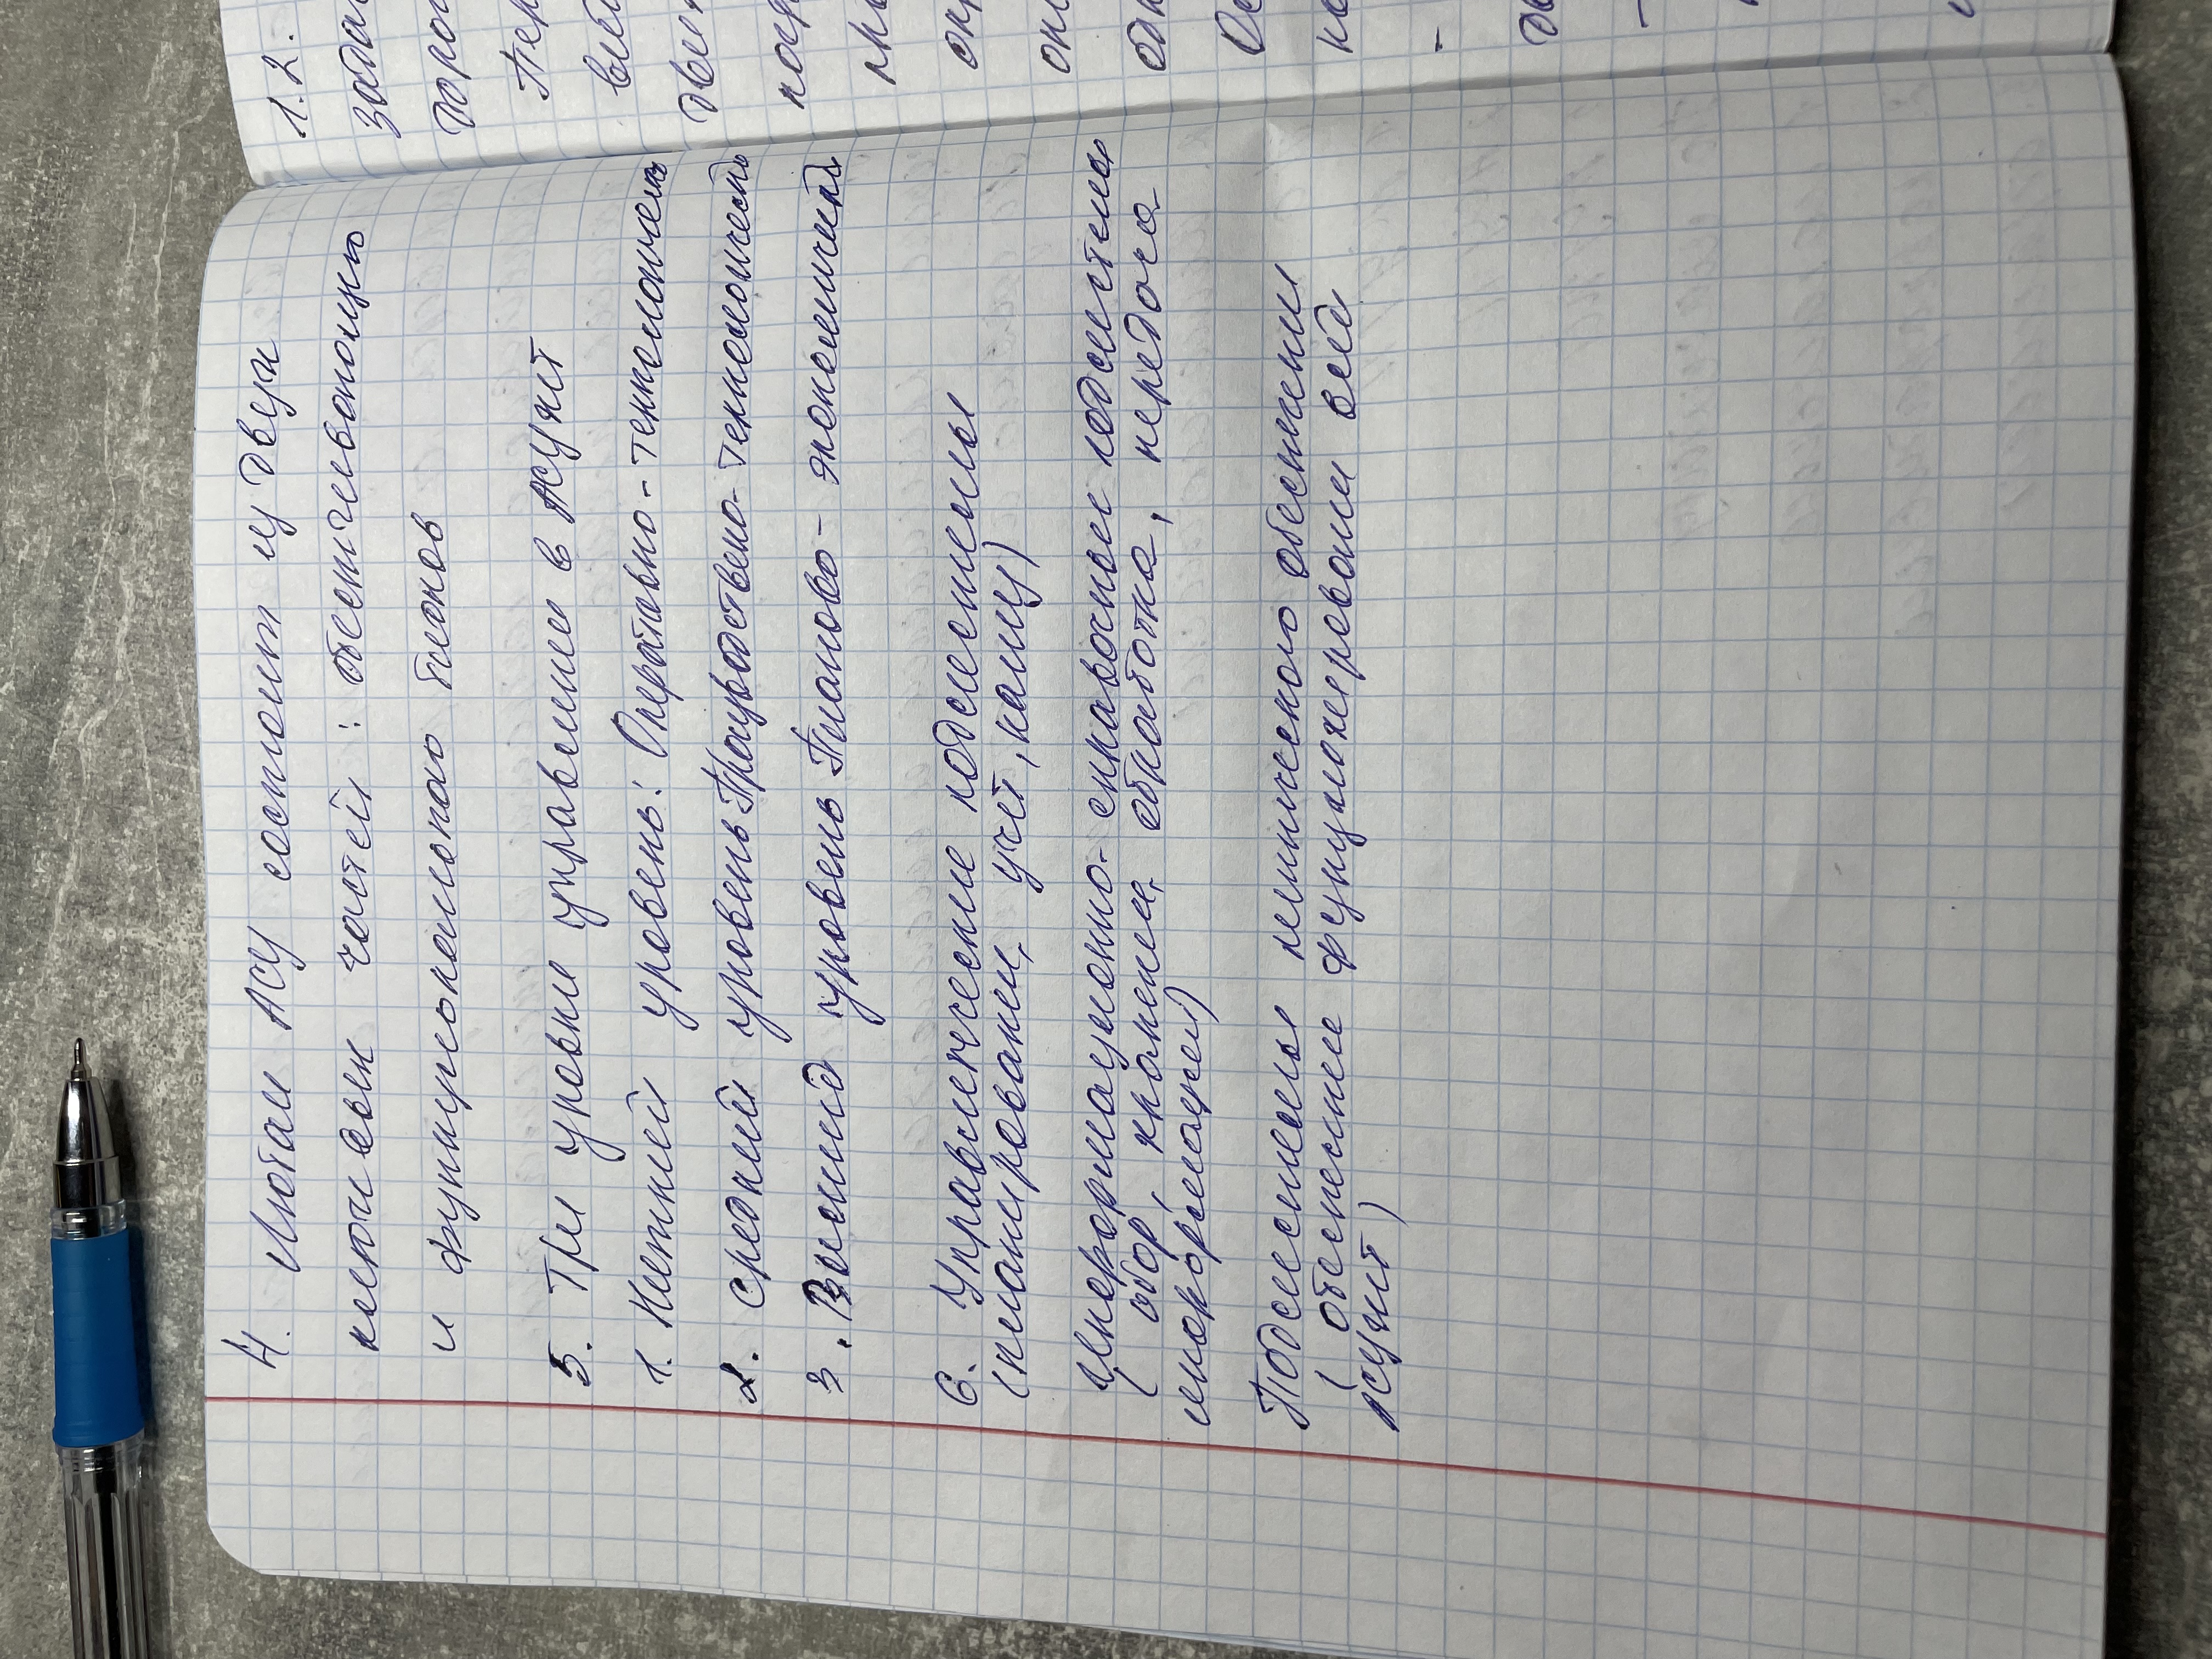 4. Любая АСУ состоит из двух
ключевых частей: обеспечивающую
и функциональною блоков
5. Три уровня управления в АСУЖТ
1. Нижний уровень: Оперативно-технологическ
2. Средний уровень Производствено-технологическ
3. Высший уровень Планово-экономический
6. Управленческие подсистемы
(планирование, учет, анализ)
Информационно-справочные подсистемы
(сбор, хранения, обработка, передача
информации)
Подсистемы технического обеспечения
(обеспечение функционирования всей
АСУЖТ)
1.2.